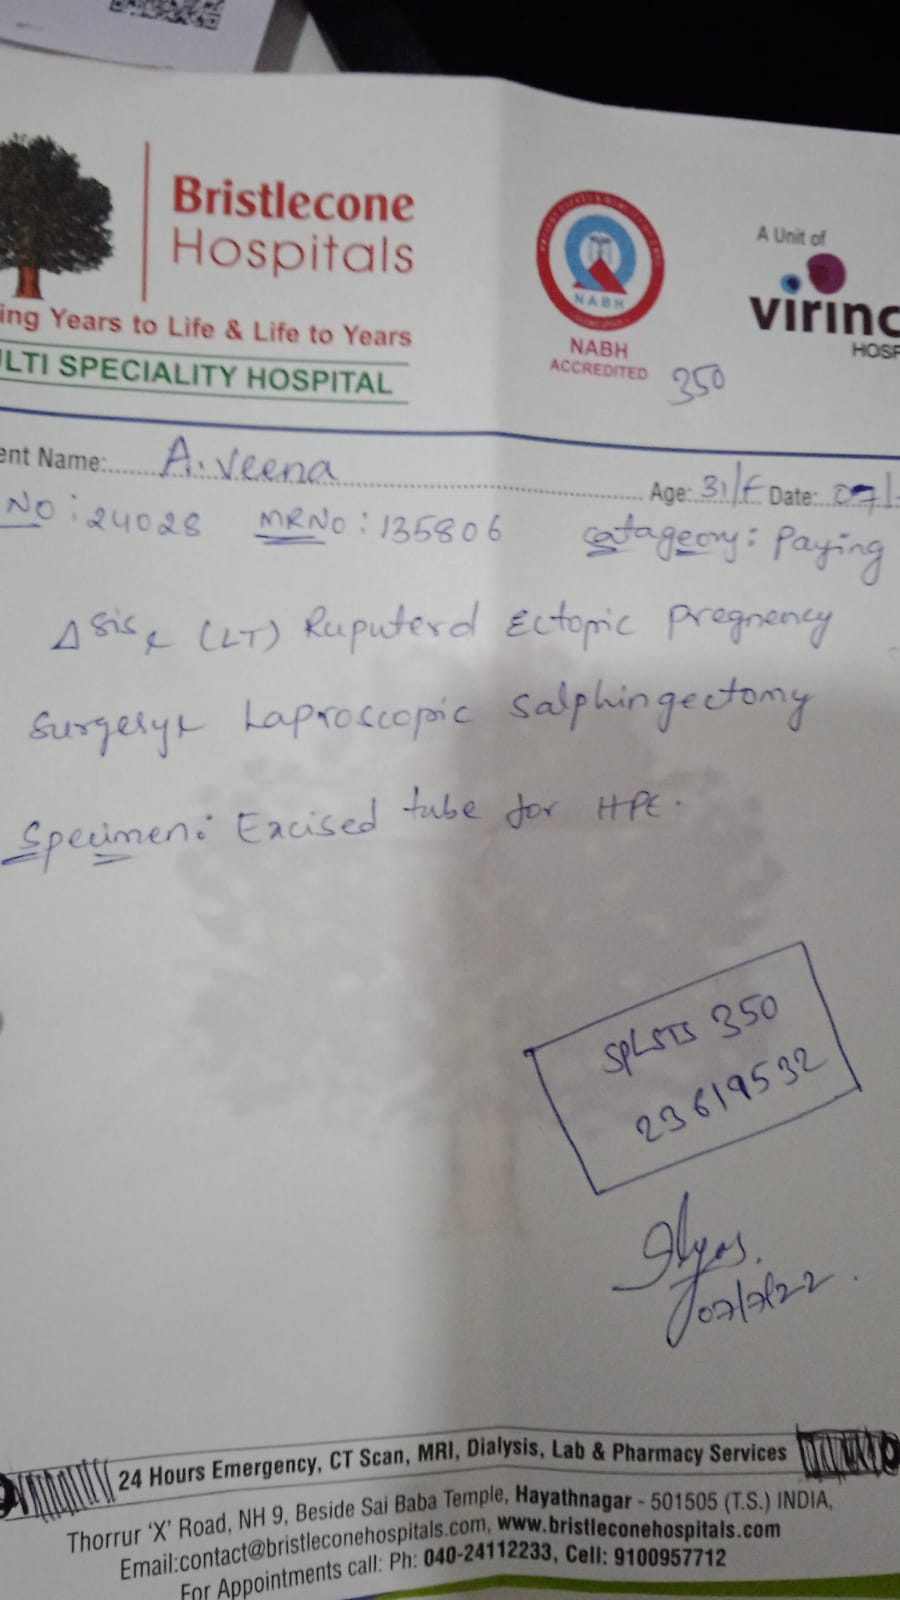 Bristlecone
Hospitals
ing Years to Life & Life to Years
LTI SPECIALITY HOSPITAL
NABH
NABH
ACCREDITED
350
A Unit of
virinc
HOSP
ent Name: A. Veena
Age: 31/F Date: 07/
NO: 24028 MRNO: 135806 Catageory: Paying
Δsis (LT) Ruputerd Ectopic Pregnency
Surgery Laproscopic Salphingectomy
Specimen: Excised tube for HPE.
SPLSTS 350
23619532
07/7/22.
24 Hours Emergency, CT Scan, MRI, Dialysis, Lab & Pharmacy Services
Thorrur 'X' Road, NH 9, Beside Sai Baba Temple, Hayathnagar - 501505 (T.S.) INDIA,
Email:contact@bristleconehospitals.com, www.bristleconehospitals.com
For Appointments call: Ph: 040-24112233, Cell: 9100957712